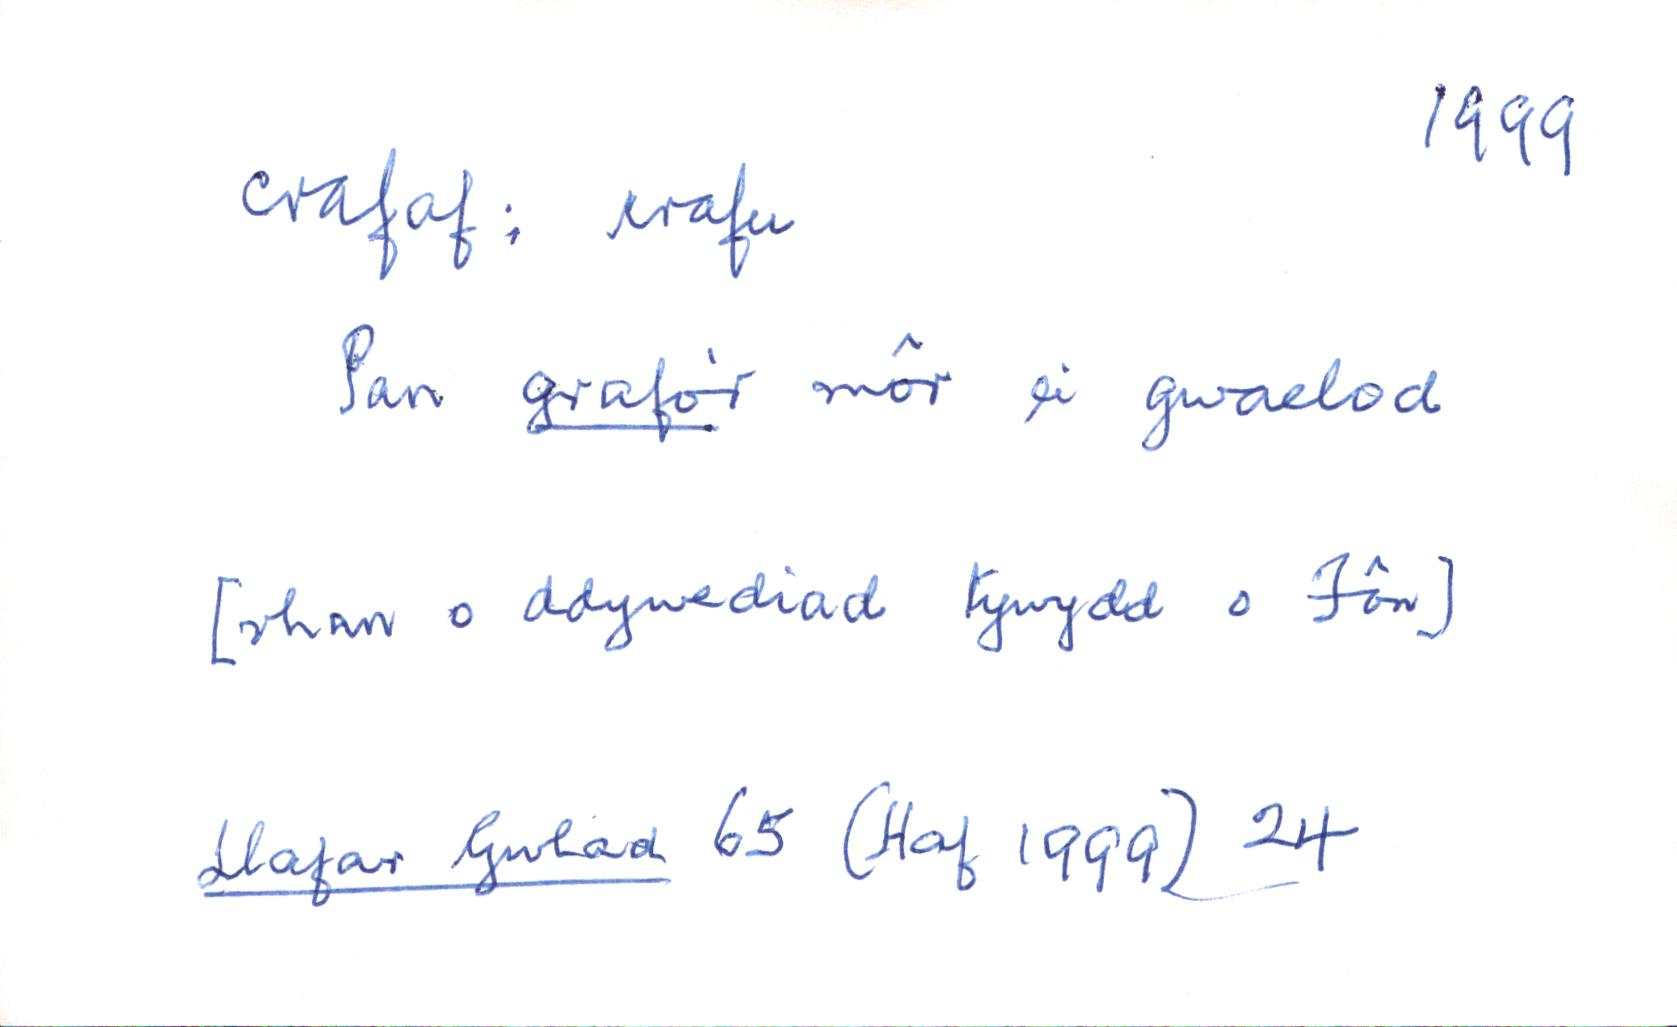 1999
crafaf: crafu
Pan grafo'r môr ei gwaelod
[rhan o ddywediad tywydd o Fôn]
Llafar Gwlad 65 (Haf 1999) 24